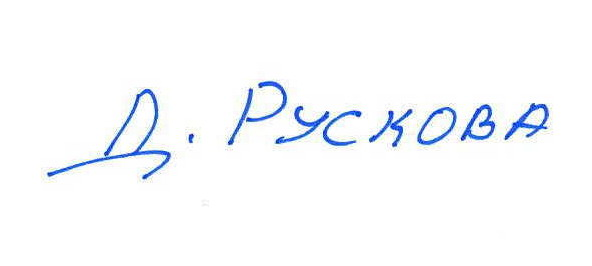 Д. РУСКОВА